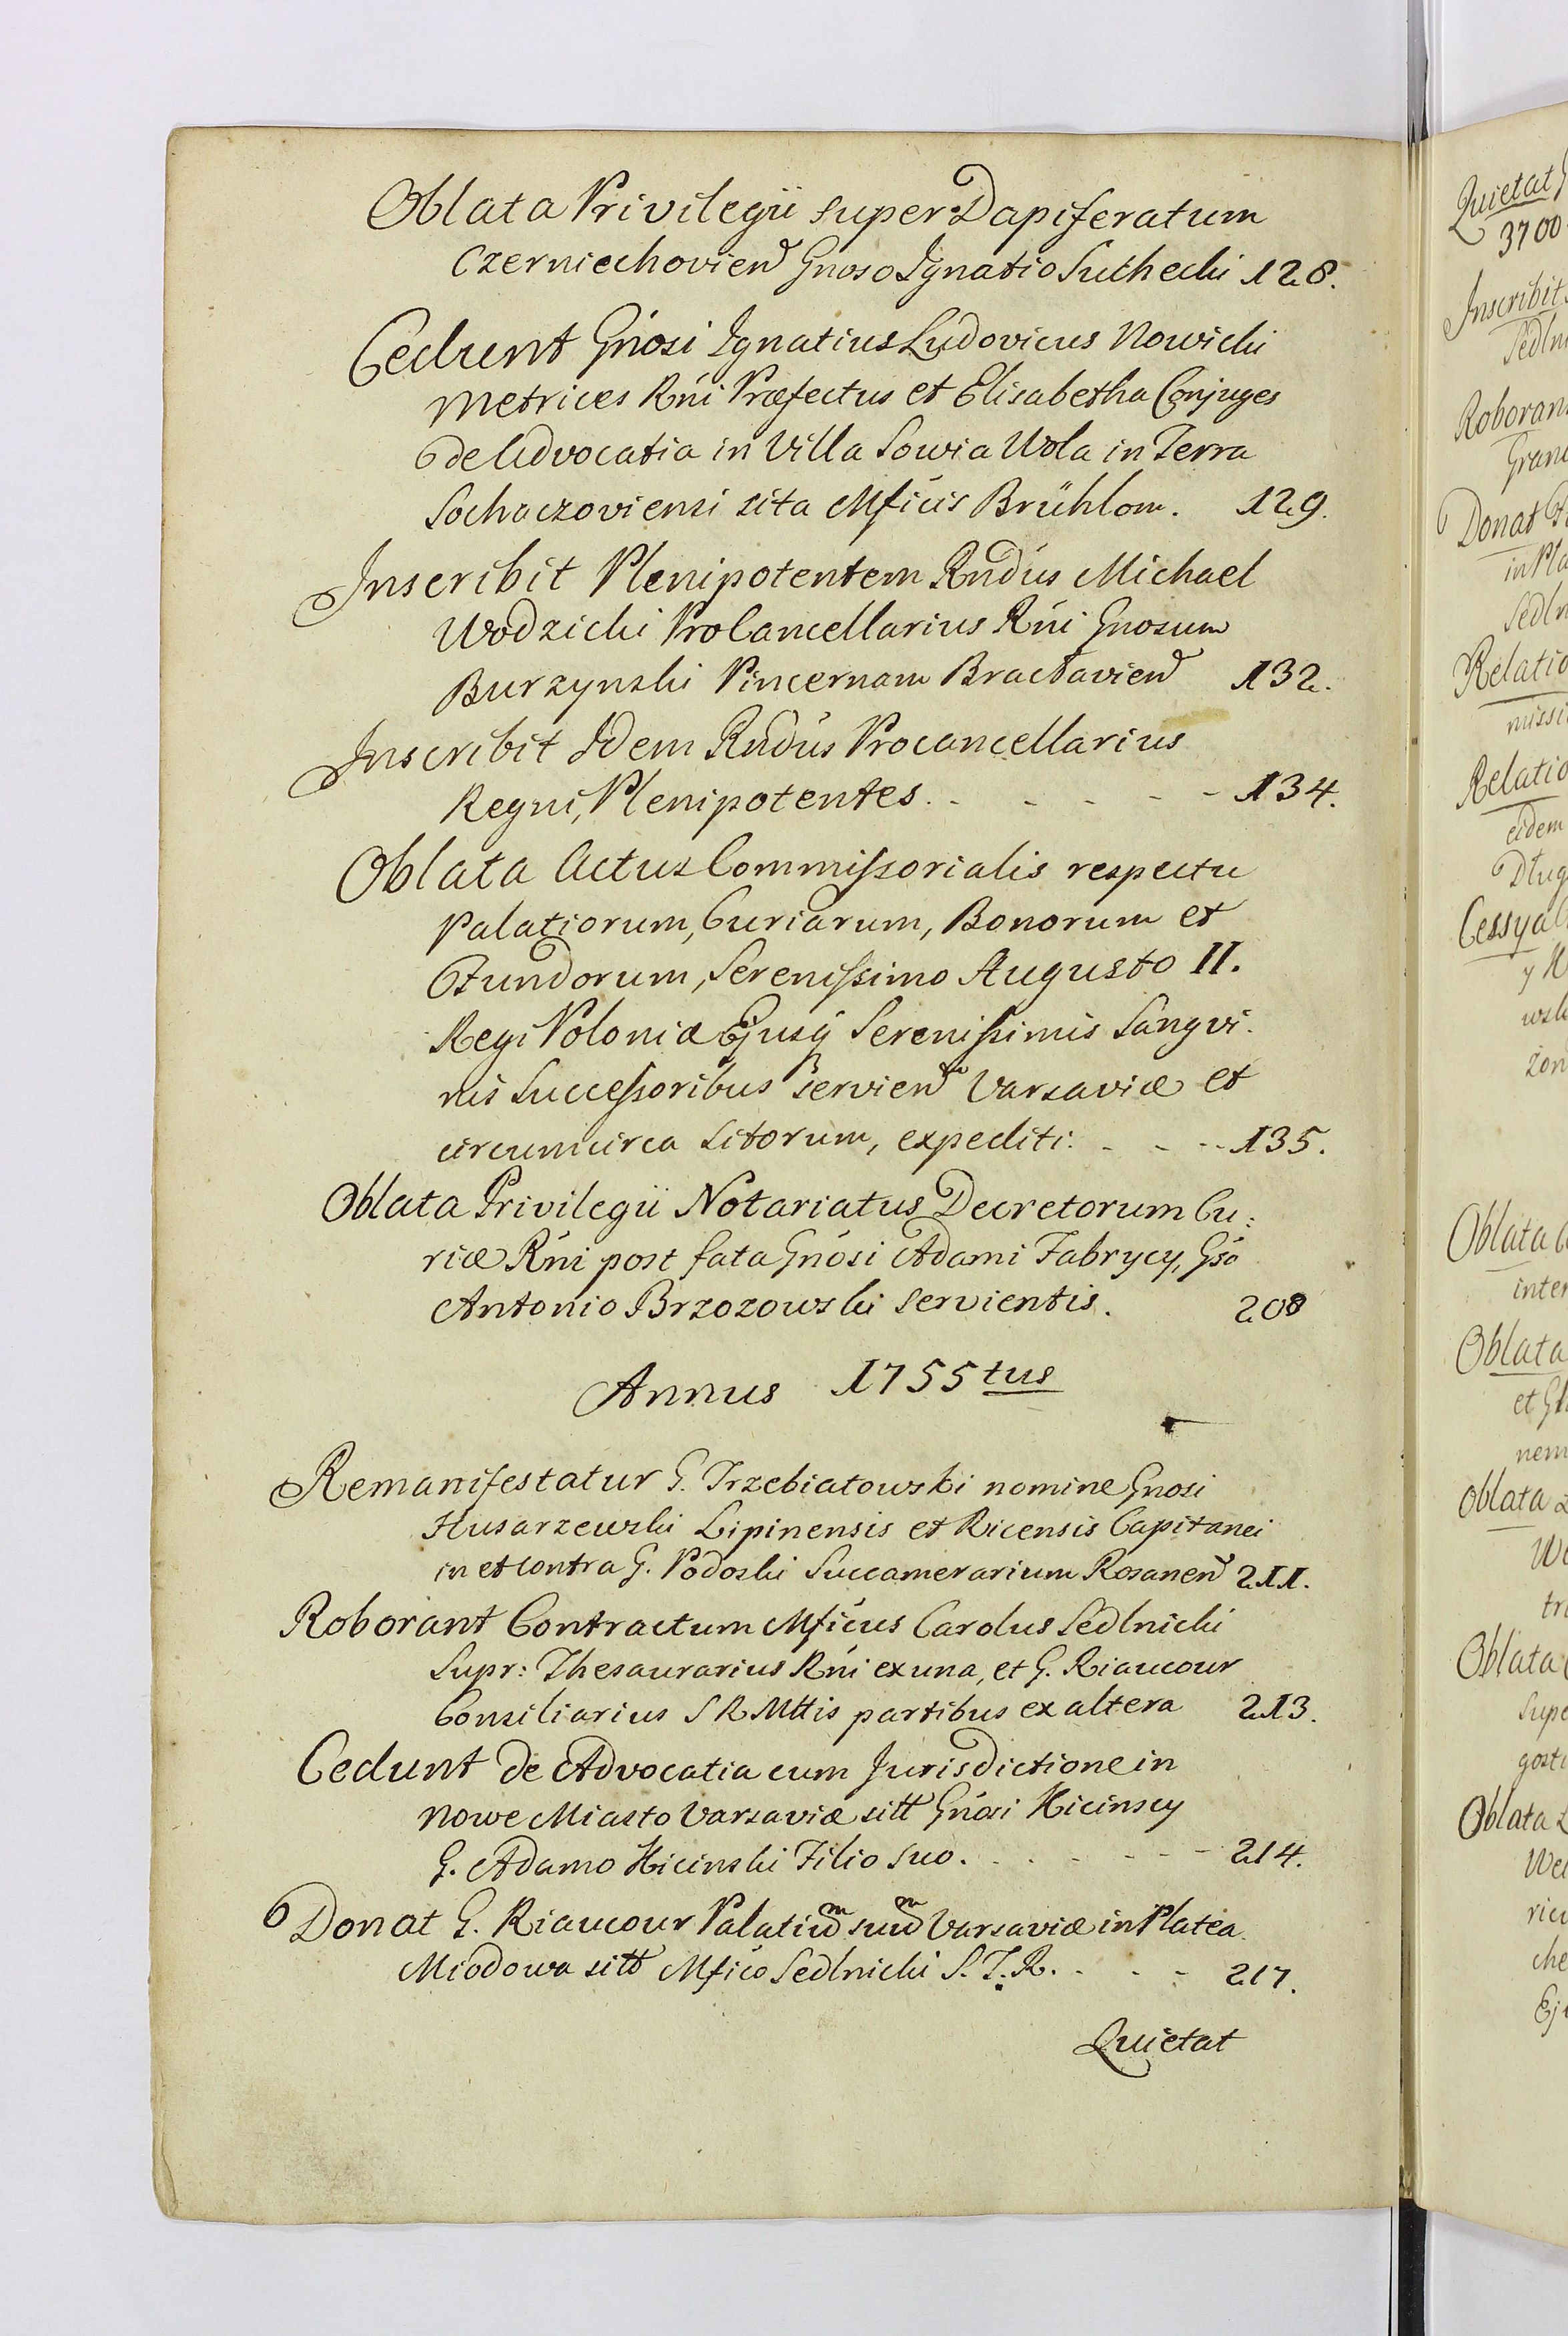 Oblata Privilegii super Dapiferatum
Czerniechovien Gnoso Ignatio Suchecki 128.
Cedunt Gnosi Ignatius Ludovicus Nowicki
Metrices Rni Præfectus et Elisabetha Conjuges
de Advocatia in Villa Sowia Wola in Terra
Sochaczoviensi sita Mficis Brühlom. 129.
Inscribit Plenipotentem Rndus Michael
Wodzicki ProCancellarius Rni Gnosum
Burzynski Pincernam Bractavien 132.
Inscribit Idem Rndus Procancellarius
Regni, Plenipotentes. - - - - - 134.
Oblata Actus Commissorialis respectu
Palatiorum, Curiarum, Bonorum et
Fundorum, Serenissimo Augusto II.
Regi Poloniæ Ejusq Serenissimis Sangvi-
nis Successoribus servien Varsaviæ et
circumcirca sitorum, expediti. - - - 135.
Oblata Privilegii Notariatus Decretorum Cu:
riæ Rni post fata Gnosi Adami Fabrycy, Gso
Antonio Brzozowski servientis. 208
Annus 1755tus
Remanifestatur G. Trzebiatowski nomine Gnosi
Husarzewski Lipinensis et Ricensis Capitanei
in et contra G. Podoski Succamerarium Rosanen 211.
Roborant Contractum Mficus Carolus Sedlnicki
Supr: Thesaurarius Rni ex una, et G. Riaucour
Consiliarius S R Mttis partibus ex altera 213.
Cedunt de Advocatia cum Jurisdictione in
Nowe Miasto Varsaviæ sitt Gnosi Kicinscy
G. Adamo Kicinski Filio suo. - - - - - 214.
Donat G. Riaucour Palatium suum Varsaviæ in Platea
Miodowa sitt Mfico Sedlnicki S. T. R. - - - 217.
Quietat
Quietat
3700
Inscribit
Sedln
Roboran
Gran
Donat
in Pla
Sedln
Relatio
missi
Relatio
eidem
Dług
Cessya
y
zon
Oblata
inter
Oblata
et
nem
Oblata
We
tr
Oblata
Supe
gosti
Oblata
We
ricu
che
Ej